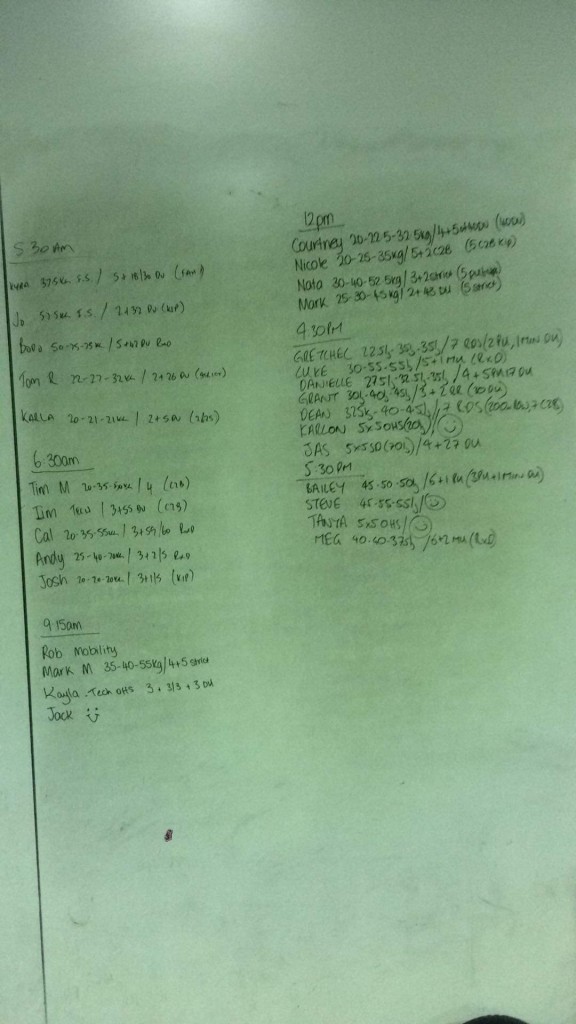 5.30am
37.5kg S.S. /
Jo 52.5kg S.S. / 2+32 DU (KIP)
50-75-75kg / 5+42 DU RxD
Tom R 22-27-32kg / 2+26 DU
KARLA 20-21-21kg / 2+5 DU
6:30am
Tim M 20-35-50kg / 4 (C2B)
Tim Tech / 3+55 DU (C2B)
Cal 20-35-55kg / 3+59/60 RxD
Andy 25-40-70kg / 3+2/5 RxD
Josh 20-20-20kg / 3+1/5 (KIP)
9.15am
Rob Mobility
Mark M 35-40-55kg/4+5 strict
Kayla - Tech OHS 3 + 3/3 + 3 DU
Jack
12pm
Courtney 20-22.5-32.5kg/4+5 (40DU)
Nicole 20-25-35kg/5+2C2B (5 C2B KIP)
Nata 30-40-52.5kg/3+2strict
Mark 25-30-45kg/2+48 DU (5 strict)
4.30PM
GRETCHEL 22.5kg-35kg-35kg/7 RDS(2PU, 1MIN DU)
LUKE 30-55-55kg/5+1MU (RxD)
DANIELLE 27.5kg-32.5kg-35kg/4+5PU17DU
GRANT 30kg-40kg-45kg/3+2RR (30DU)
DEAN 37.5kg-40-45kg/7 RDS(200m Row, 7 C2B)
KARLON 5x5OHS(20kg)/
JAS 5x5SD(70kg)/4+27 DU
5:30PM
BAILEY 45-50-50kg/6+1PU(3PU+1MIN DU)
STEVE 45-55-55kg/
TANYA 5x5OHS/
MEG 40-40-37.5kg/6+2MU(RxD)